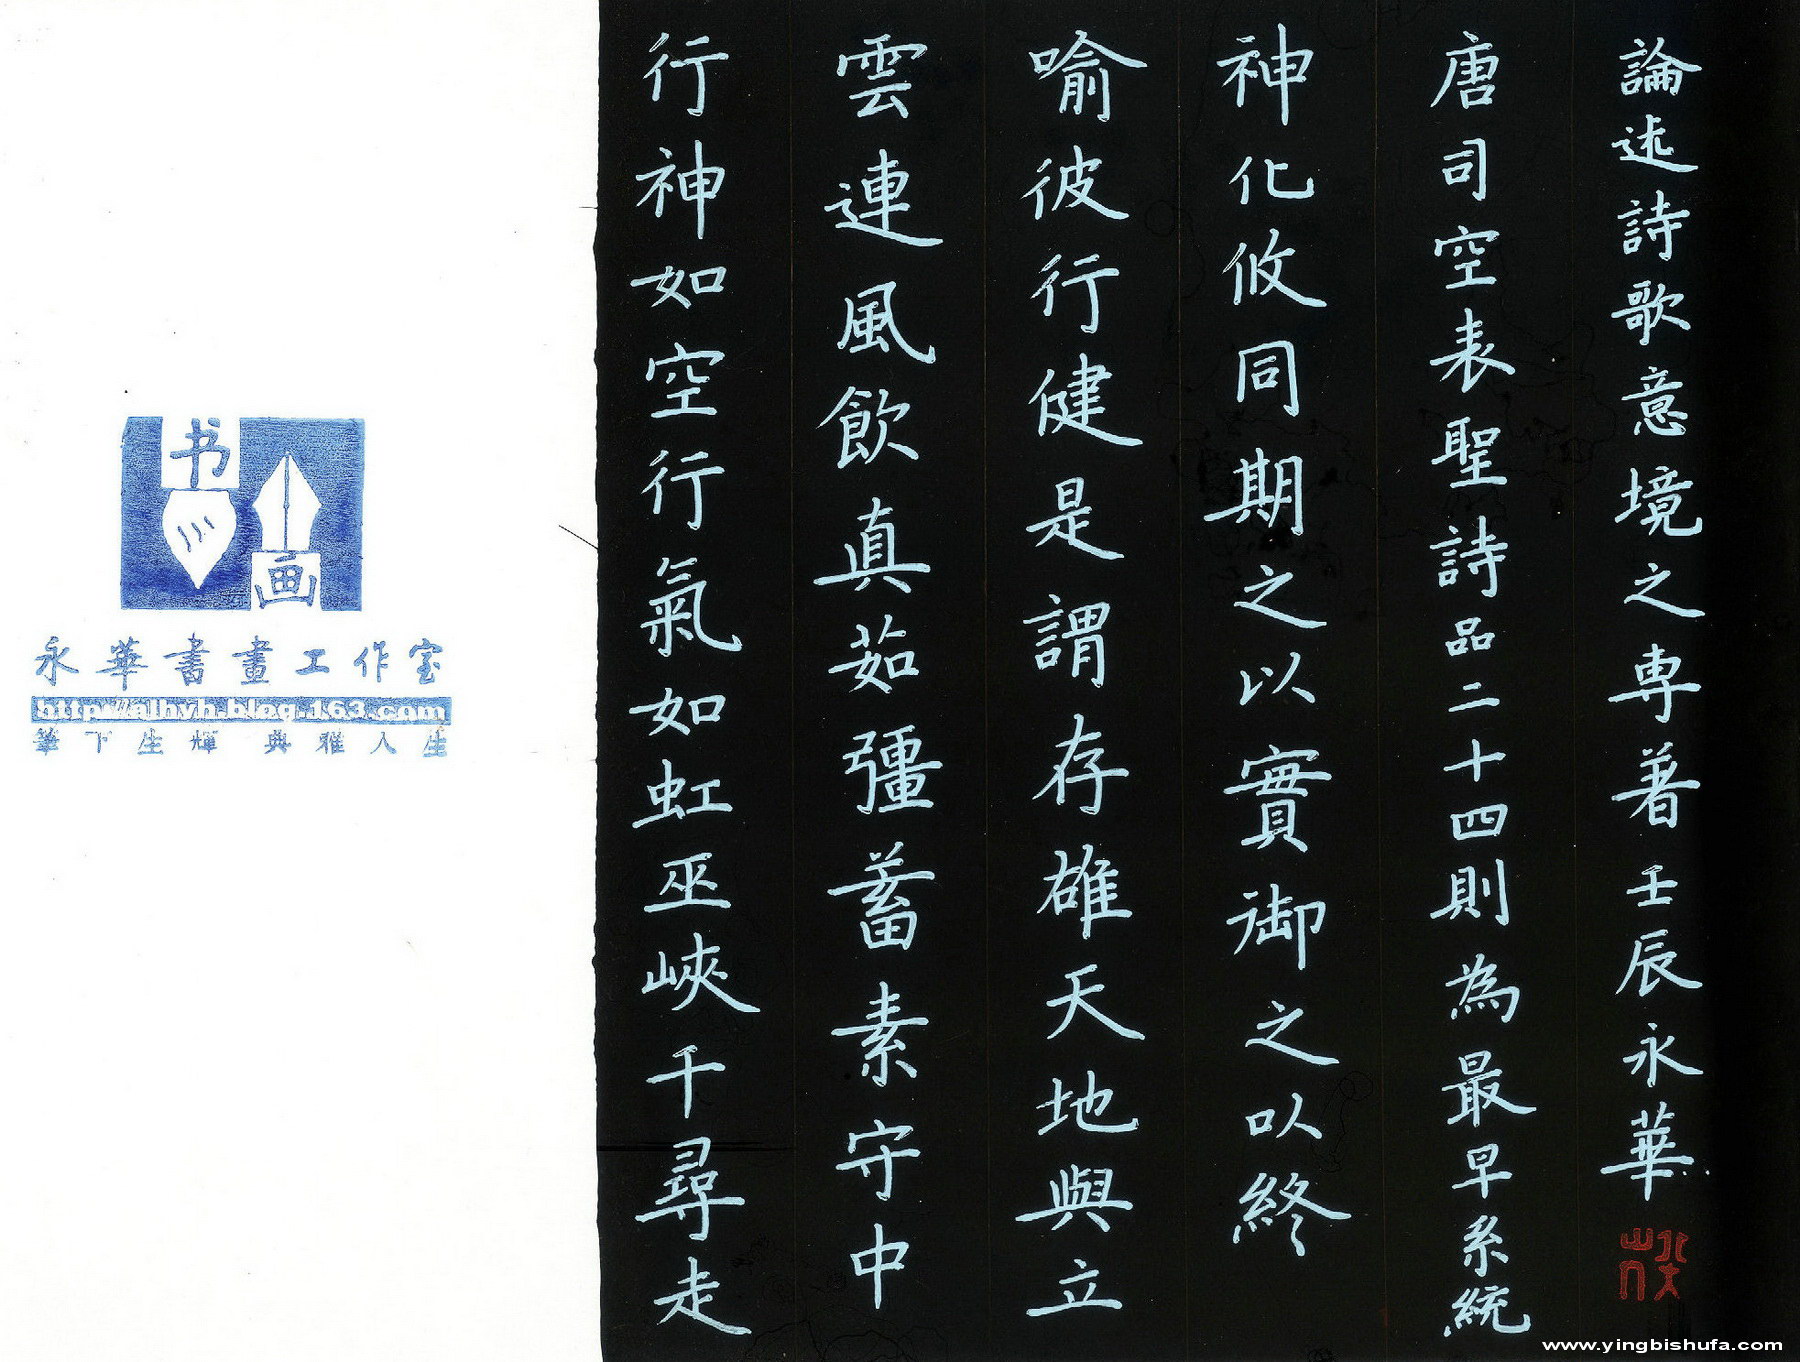 书
画
永華書畫工作室
http://alhyh.blog.163.com
筆下生輝 典雅人生
行神如空行氣如虹巫峽千尋走
雲連風飲真茹彊蓄素守中
喻彼行健是謂存雄天地與立
神化攸同期之以實御之以終
唐司空表聖詩品二十四則為最早系統
論述詩歌意境之専著壬辰永華
www.yingbishufa.com